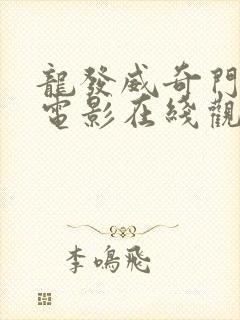 龍發威奇門
電影在綫觀
李鳴飛